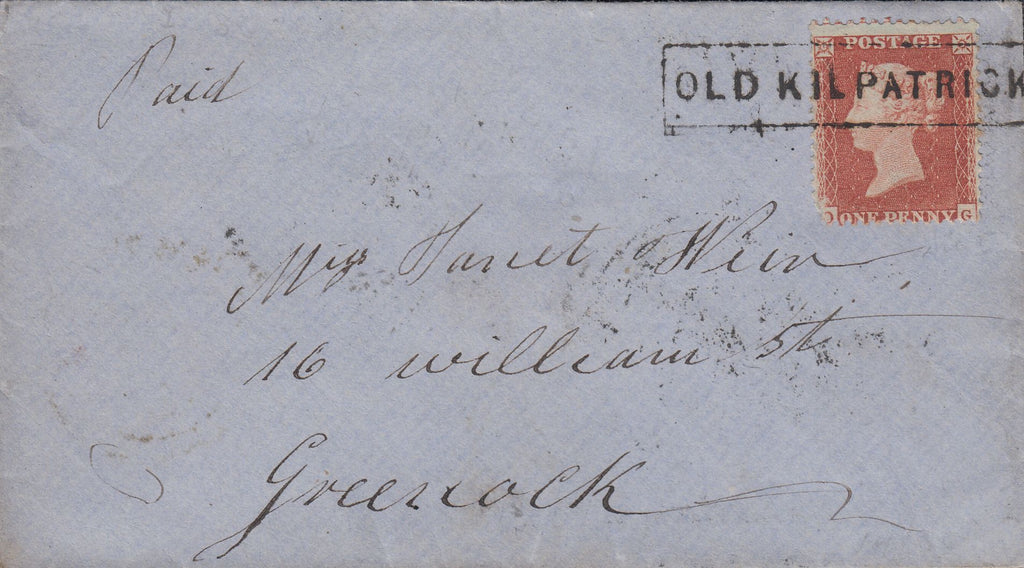 Paid
POSTAGE
OLD KILPATRICK
ONE PENNY G
Miss Janet Weir
16 William St
Greenock